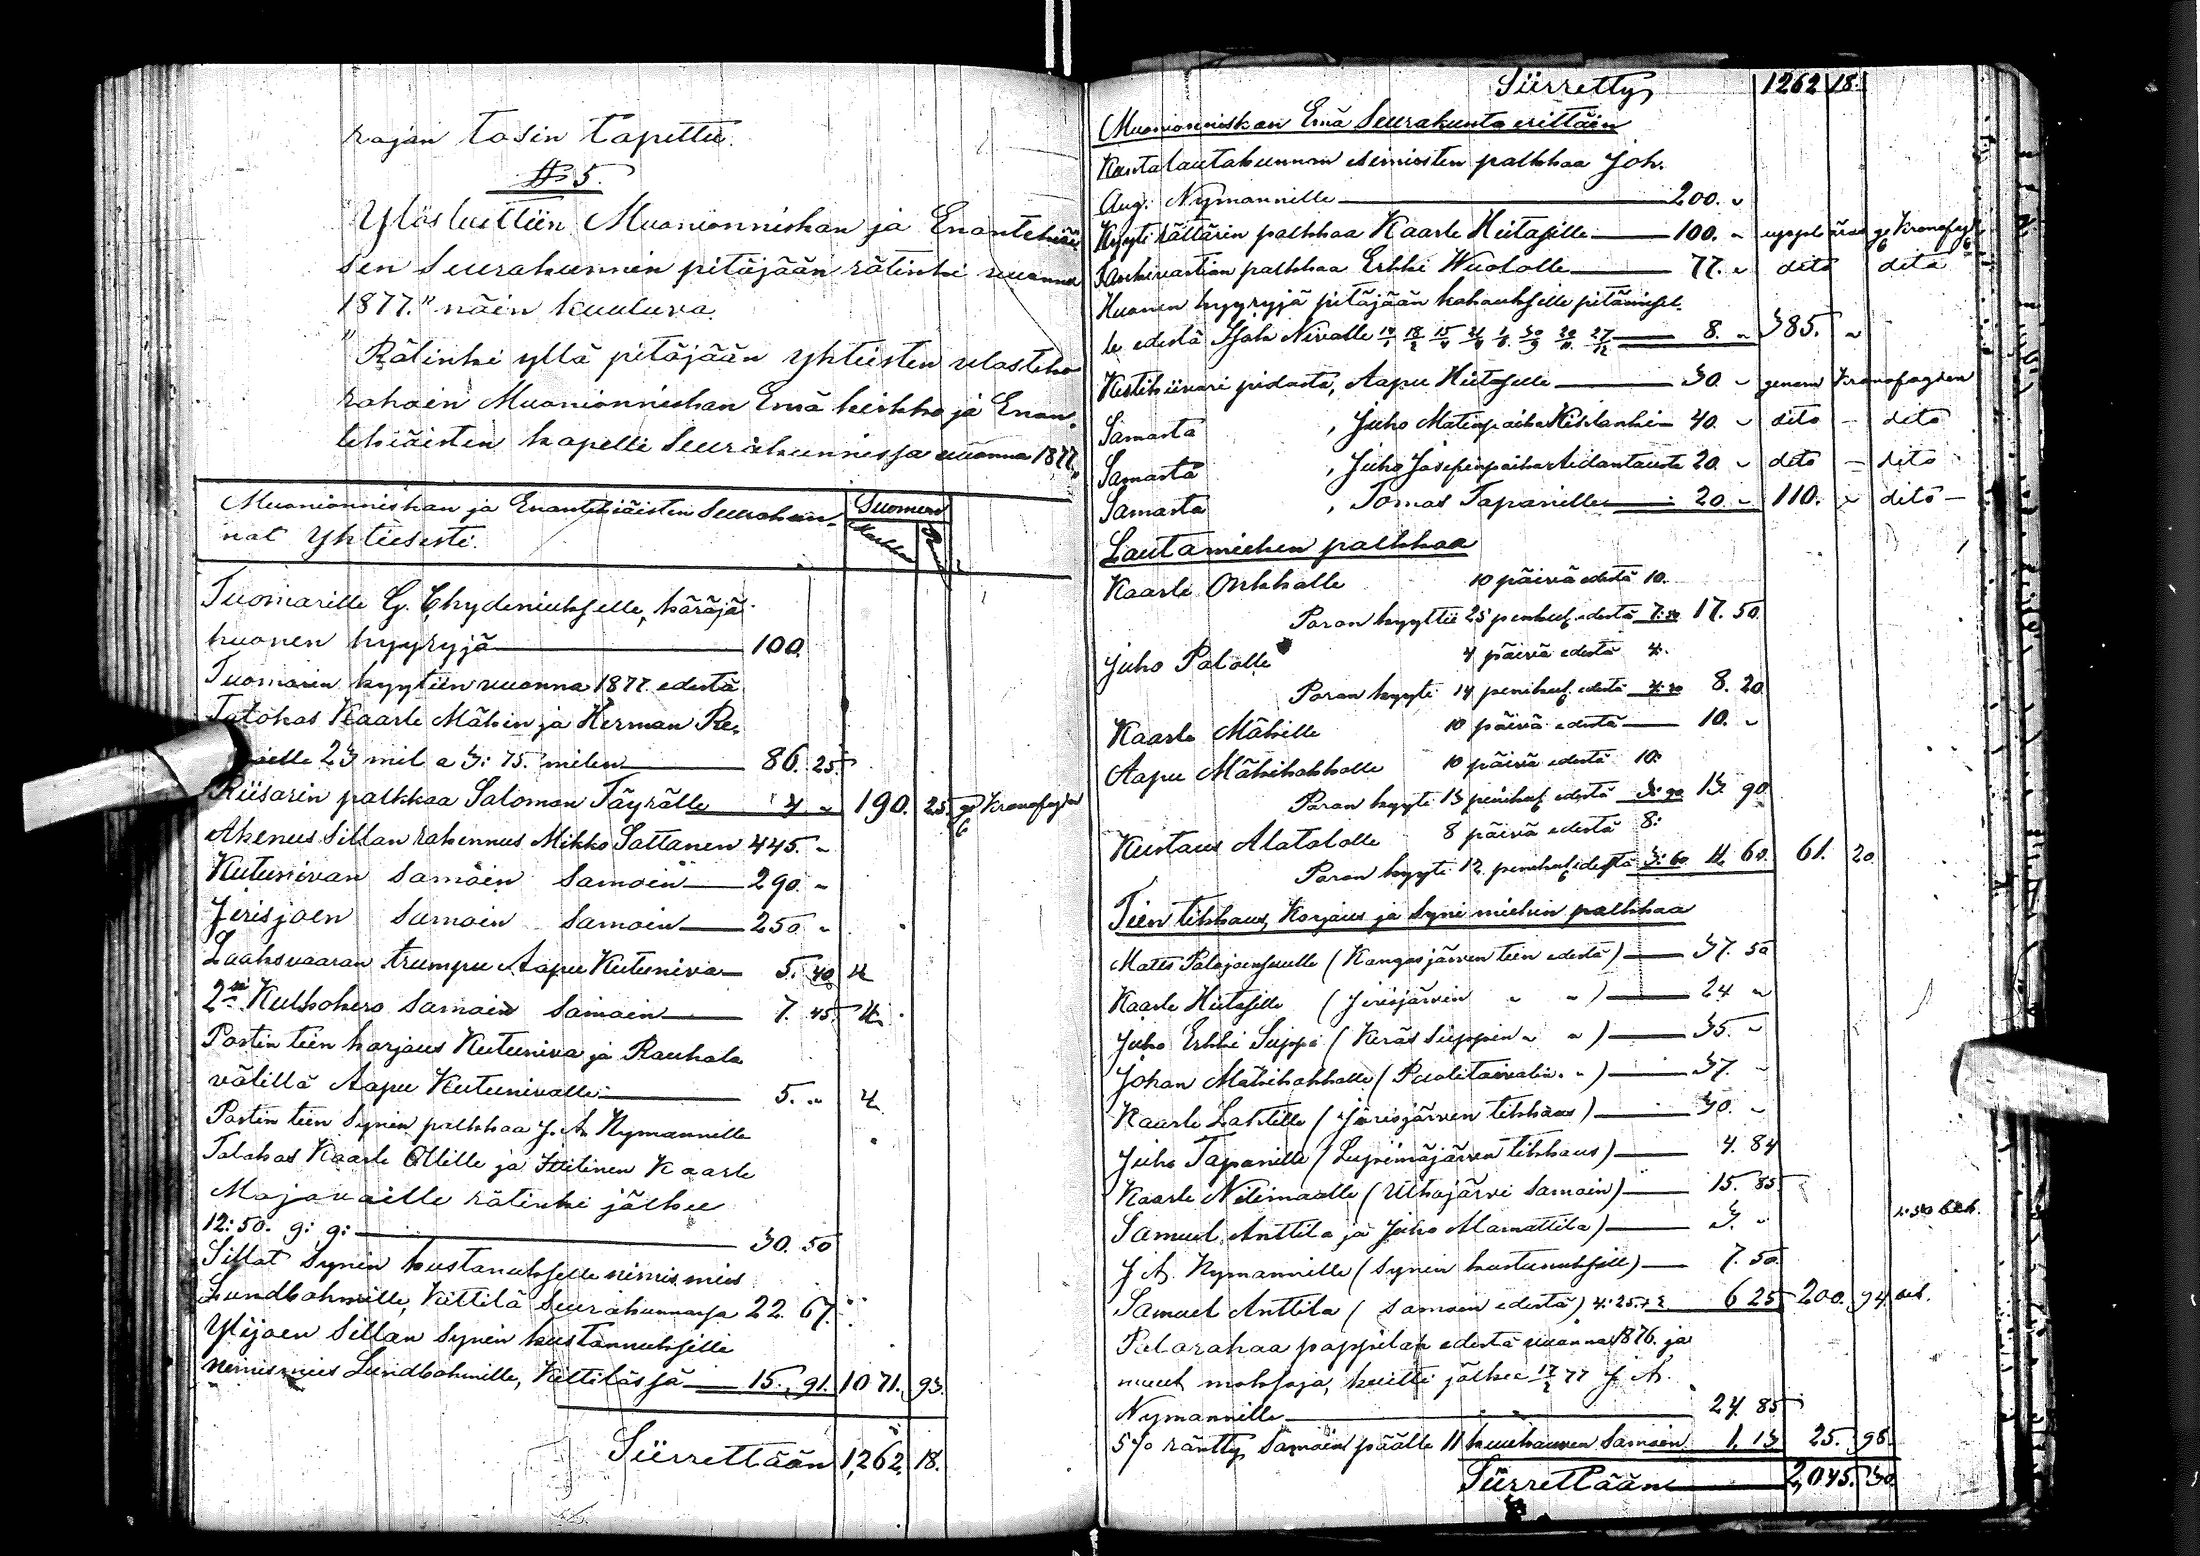 rajan tasin tapettu.
§ 5.
Ylösluettiin Muonionniskan ja Enontekiäi
sen Seurakunnin pitäjään rätinki vuonna
1877." näin kuuluva.
"Rätinki yllä pitäjään yhteisten ulosteko
rahain Muonionniskan Emä kirkko ja Enon-
tekiäisten kapelli Seurakunnissa vuonna 1877."
Muonionniskan ja Enontekiäisten Seurakun- Suomen
nat Yhteisesti. Markka P
Tuomarille G. Chydeniukselle, käräjä
huonen hyyryjä 100.
Tuomarin kyytiin vuonna 1877 edestä
Talokas Kaarle Mäkin ja Herman Re-
ille 23 mil a 3: 75. milen 86. 25
Riisarin palkkaa Saloman Täyrälle 4 " 190. 25 Kronofogden
Akenus Sillan rakennus Mikko Sattanen 445. "
Kutunivan Samoin Samoin 290. "
Jerisjoen Samoin Samoin 250 "
Laaksvaaran trumpu Aapu Kutuniva 5. 40
2 Kulkokero Samoin Samoin 7. 45.
Postin tien korjaus Kutuniva ja Rauhala
välillä Aapu Kutunivalle 5. "
Postin tien Synin palkkaa J. A. Nymannille
Talokas Kaarle Ollille ja Kaarle
Majavaille rätinki jälkee
12: 50. 9: 9: 30. 50
Sillat Synin kustanukselle nimismies
Lundbohmille, Kittilä Seurakunnassa 22. 67.
Ylijoen Sillan Synin kustannukselle
nimismies Lundbohmille, Kittilässä 15. 91. 1071. 93.
Siirrettään 1,262. 18.
Siirretty 1262 18.
Muonionniskan Emä Seurakunta erittäin
Kuntalautakunnan esimiesten palkkaa Joh.
Aug. Nymannille 200. "
Kyyti rättärin palkkaa Kaarle Hietasille 100. " Kronofog
palkkaa Erkki Wuololle 77. " dito dito
Huonen hyyryjä pitäjään kokouksille pitämisel-
le edestä Isak Nivalle 8. " 385. "
Kestikiivari pidosta, Aapu Hietaselle 30. " genom Kronofogden
Samasta , Juho Matinpoika Kihlanki 40. " dito - dito
Samasta , Juho Josefinpoika 20. " dito - dito
Samasta , Tomas Tapanille 20. " 110. " dito -
Lautamiehen palkkaa
Kaarle Orhhalle 10 päivä edestä 10.
Poron kyyttii 25 penkul. edestä 7: 50 17. 50
Juho Palolle 4 päivä edestä 4.
Poron kyyti 14 penikul. edestä 4: 20 8. 20
Kaarle Mäkille 10 päivä edestä 10. "
Aapu Mäkihakkalle 10 päivä edestä 10.
Poron kyyti 13 penikul edestä 3: 90 13 90
Kustaus Alatalolle 8 päivä edestä 8:
Poron kyyti 12 penikul edestä 3: 60 11. 60. 61. 20.
Tien tikkaus, Korjaus ja Syni miehin palkkaa
Mates Palojoensuulle (Kangasjärven tien edestä) 37. 50
Kaarle Hietasille (Jerisjärvein " " ) 24 "
Juho Erkki Suppi (Keräs Sieppin " " ) 35. "
Johan Mäkihakkalle (Puolitaivalin " ) 37. "
Kaarle Lahtille (Jerisjärven tikkaus) 30. "
Juho Tapanille (Liepimäjärven tikkaus) 4. 84
Kaarle Nilimaalle (Utkojärvi Samoin) 15. 85
Samuel Anttila ja Juho Mamattila) 3. "
J. A. Nymannille (Synin kustanuksill) 7. 50.
Samuel Anttila ( Samoen edestä) 4: 25. + 2. 6 25 200. 94
Palorahaa pappilan edestä vuonna 1876. ja
muut maksoja, kuitti jälkee 77 J. A.
Nymannille 24 85
5% räntty Samoin päälle 11 kuukauven Samoin 1. 13 25. 98.
Siirrettään 2,045. 30.